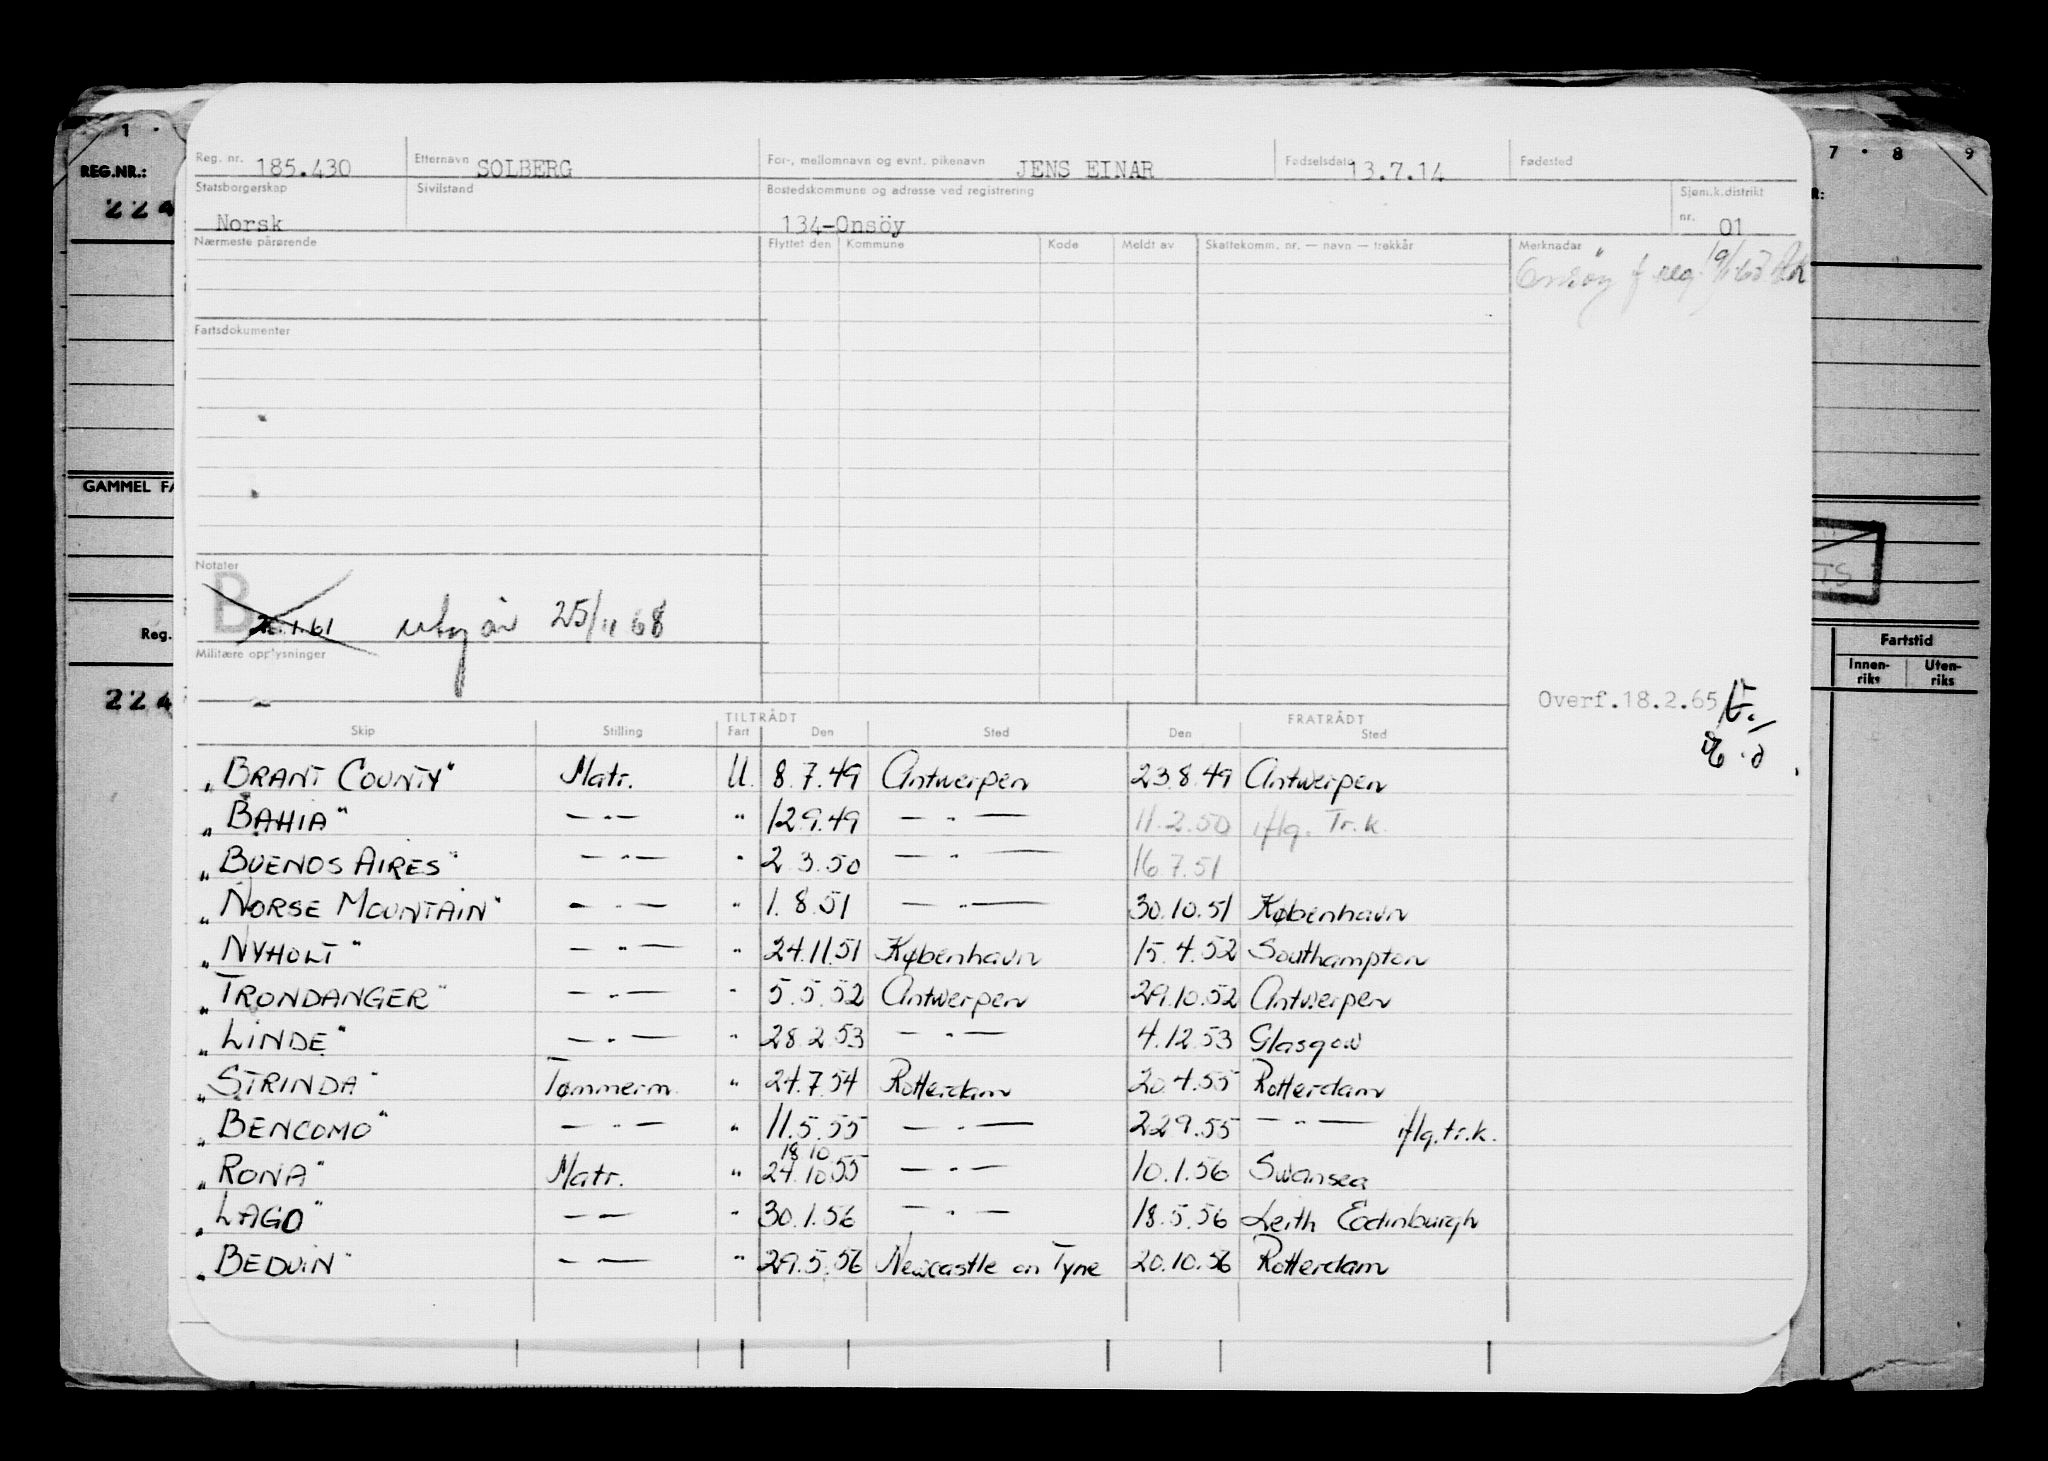 1 · 7 · 8 9
REG.NR.:
224
Reg. nr. 185.430 Etternavn SOLBERG For-, mellomnavn og evnt. pikenavn JENS EINAR Fødselsdato 13.7.14 Fødested
Statsborgerskap Sivilstand Bostedskommune og adresse ved registrering Sjøm.k.distrikt
Norsk 134-Onsöy nr. 01
Nærmeste pårørende Flyttet den Kommune Kode Meldt av Skattekomm. nr. — navn — trekkår Merknader
Onsöy f reg.
Fartsdokumenter
GAMMEL FA
Notater
B 1.61 utg år 25/11 68
Reg.
Militære opplysninger
Fartstid
Innen-riks Uten-riks
224
Overf.18.2.65
TILTRÅDT FRATRÅDT
Skip Stilling Fart Den Sted Den Sted
„BRANT COUNTY" Matr. U. 8.7.49 Antwerpen 23.8.49 Antwerpen
„BAHIA" — " — " 12.9.49 — " — 11.2.50 iflg. Tr.k.
„BUENOS AIRES" — " — " 2.3.50 — " — 16.7.51
„NORSE MOUNTAIN" — " — " 1.8.51 — " — 30.10.51 København
„NYHOLT" — " — " 24.11.51 København 15.4.52 Southampton
„TRONDANGER" — " — " 5.5.52 Antwerpen 29.10.52 Antwerpen
„LINDE" — " — " 28.2.53 — " — 4.12.53 Glasgow
„STRINDA" Tømmerm. " 24.7.54 Rotterdam 20.4.55 Rotterdam
„BENCOMO" — " — " 11.5.55 — " — 22.9.55 — " — iflg.tr.k.
18 10
„RONA" Matr. " 24.10.55 — " — 10.1.56 Swansea
„LAGO" — — " 30.1.56 — " — 18.5.56 Leith Eadinburgh
„BEDUIN" — — " 29.5.56 Newcastle on Tyne 20.10.56 Rotterdam